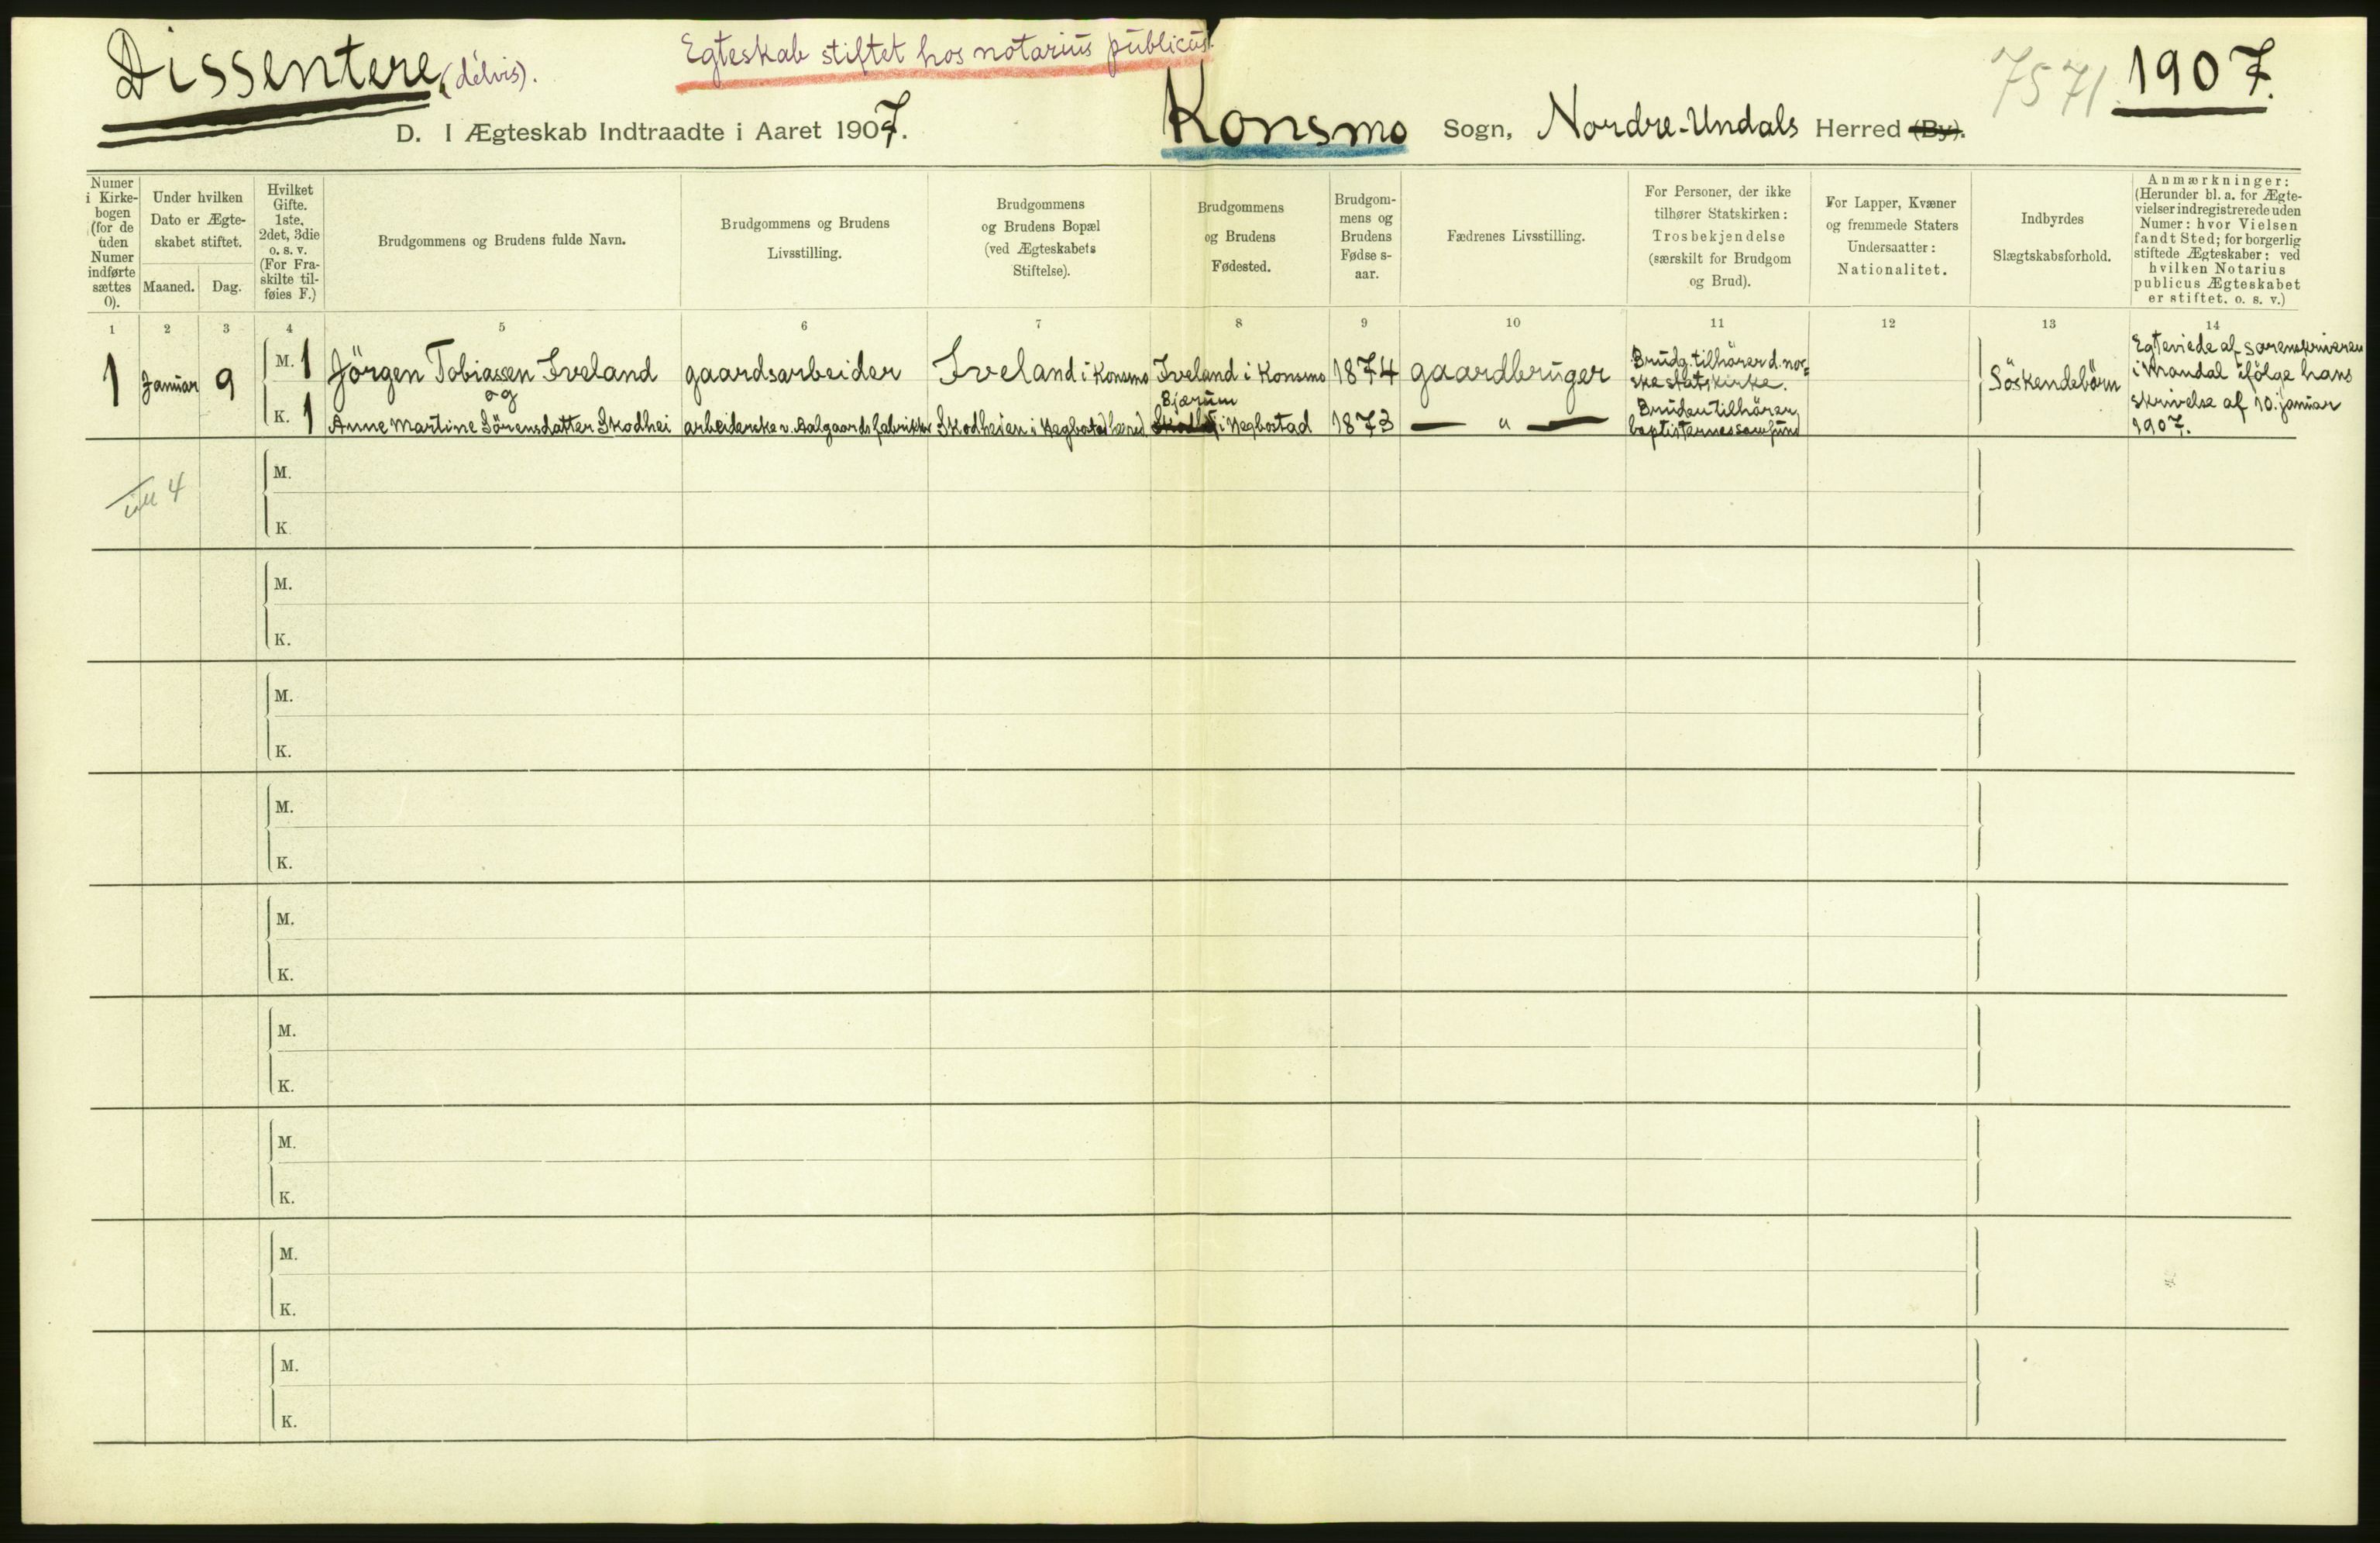 Dissentere (délvis).
Egteskab stiftet hos notarius publicus.
7571
1907.
D. I Ægteskab Indtraadte i Aaret 1907. Konsmo Sogn, Nordre-Undals Herred (By).
Numer i Kirkebogen (for de uden Numer indførte sættes 0).
Under hvilken Dato er Ægteskabet stiftet.
Maaned. Dag.
Hvilket Gifte. 1ste, 2det, 3die o. s. v. (For Fraskilte tilføies F.)
Brudgommens og Brudens fulde Navn.
Brudgommens og Brudens Livsstilling.
Brudgommens og Brudens Bopæl (ved Ægteskabets Stiftelse).
Brudgommens og Brudens Fødested.
Brudgommens og Brudens Fødse s-aar.
Fædrenes Livsstilling.
For Personer, der ikke tilhører Statskirken: Trosbekjendelse (særskilt for Brudgom og Brud).
For Lapper, Kvæner og fremmede Staters Undersaatter: Nationalitet.
Indbyrdes Slægtskabsforhold.
Anmærkninger: (Herunder bl. a. for Ægtevielser indregistrerede uden Numer: hvor Vielsen fandt Sted; for borgerlig stiftede Ægteskaber: ved hvilken Notarius publicus Ægteskabet er stiftet, o. s. v.)
1 2 3 4 5 6 7 8 9 10 11 12 13 14
1 Januar 9
M. 1 Jörgen Tobiassen Iveland gaardsarbeider Iveland i Konsmo Iveland i Konsmo 1874 gaardbruger Brudg. tilhörer d. norske statskirke.
og
K. 1 Anne Martine Sörensdatter Skodhei arbeiderske v. Aalgaards fabrikker Skodheien i Hegbostad herred Bjærum i Hegbostad 1873 — " — Bruden tilhörer baptisternes samfund
Söskendebörn
Egteviede af sorenskriveren i Mandal ifölge hans skrivelse af 10. januar 1907.
4
M.
K.
M.
K.
M.
K.
M.
K.
M.
K.
M.
K.
M.
K.
M.
K.
M.
K.